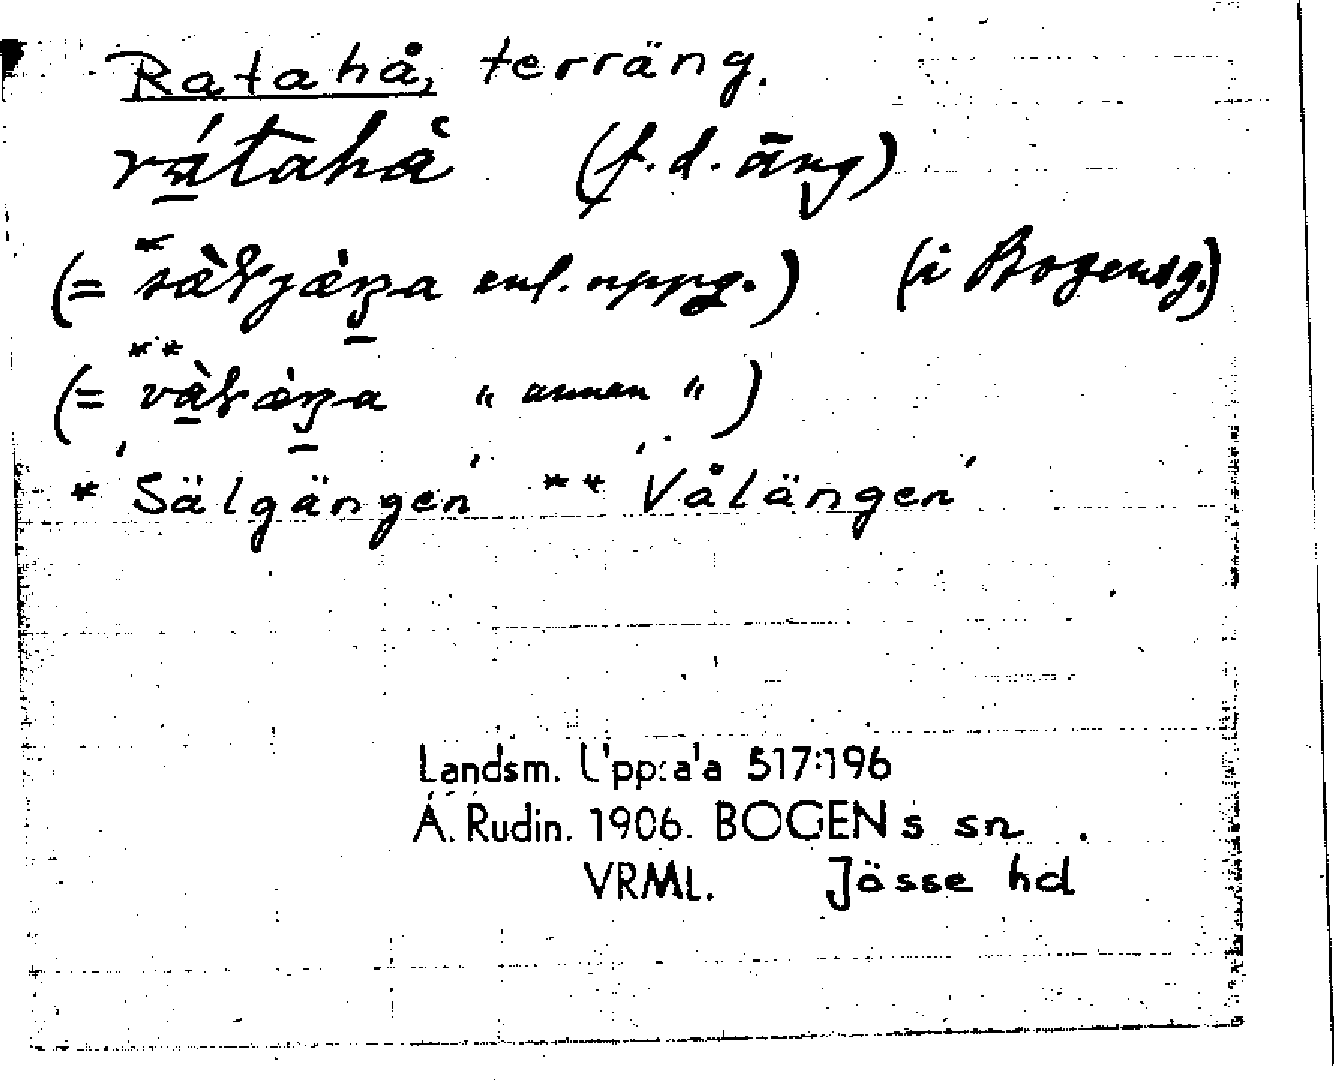 Ratahå, terräng.
rátahå (f.d. äng)
(= * sàłjàŋa enl. uppg.) (i Bogensg.)
(= ** vàłàŋa " annan ")
* 'Sälgängen' ** 'Vålängen'
Landsm. Uppsala 517:196
A. Rudin. 1906. BOGENs sn.
VRML. Jösse hd